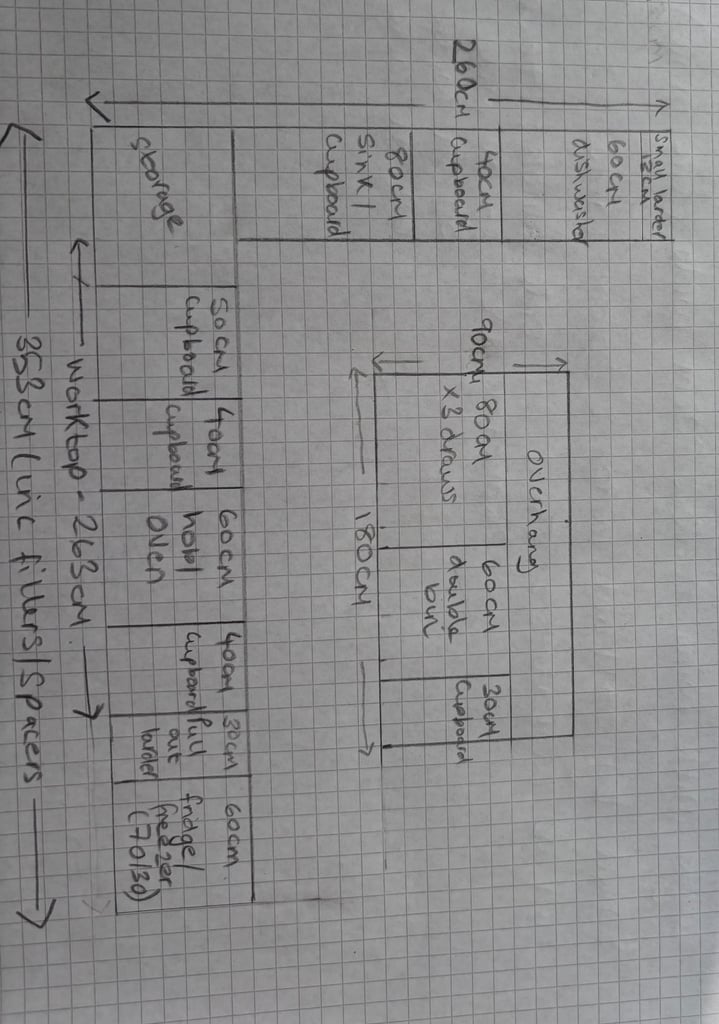 260cm
small larder
12cm
60cm
dishwasher
40cm
cupboard
80cm
sink /
cupboard
storage
90cm
overhang
80cm
x 3 draws
60cm
double
bin
30cm
cupboard
180cm
50cm
cupboard
40cm
cupboard
60cm
hob/
oven
40cm
cupboard
30cm
pull
out
larder
60cm.
fridge/
freezer
(70/30)
worktop - 263cm.
353cm (inc fillers/spacers